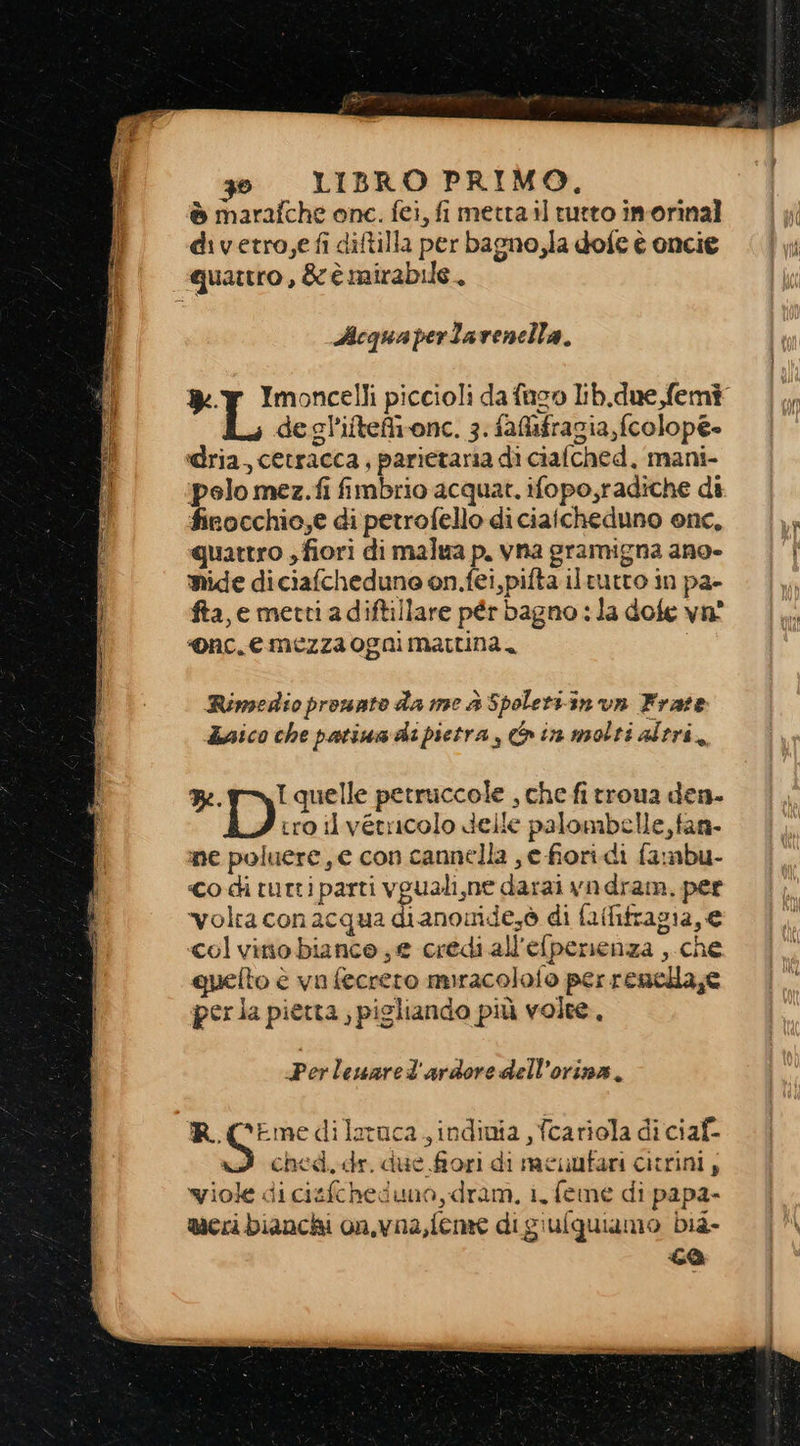 30 LIBRO PRIMO.
è marasche onc. sei, si metta il tutto in orinal
di vetro, e si distilla per bagno, la dose è oncie
quattro, & è mirabile.
Acqua per la renella.
℞. LImoncelli piccioli da sugo lib. due, semi
de gl'istessi onc. 3. sassifragia, scolopē-
dria, cetracca, parietaria di ciasched. mani-
polo mez. si fimbrio acquat. isopo, radiche di
finocchio, e di petrosello di ciascheduno onc.
quattro, fiori di malua p. vna gramigna ano-
nide di ciascheduno on. sei, pista il tutto in pa-
sta, e metti a distillare pér bagno : la dose vn'
onc. e mezza ogni mattina.
Rimedio prouato da me à Spoleti in vn Frate
Laico che patiua di pietra, & in molti altri.
℞. DI quelle petruccole, che si troua den-
tro il vétricolo delle palombelle, fan-
ne poluere, e con cannella, e fiori di sambu-
co di tutti parti vguali, ne darai vn dram. per
volta con acqua di anonide, ò di sassifragia, e
col vino bianco, e credi all'esperienza, che
questo è vn secreto miracoloso per renella, e
per la pietta, pigliando più volte.
Per leuare l'ardore dell'orina.
R. SEme di latuca, indiuia, scariola di cias-
ched. dr. due fiori di menufari citrini,
viole di ciascheduno, dram. i. seme di papa-
ueri bianchi on. vna, seme di giusquiamo biā-
co